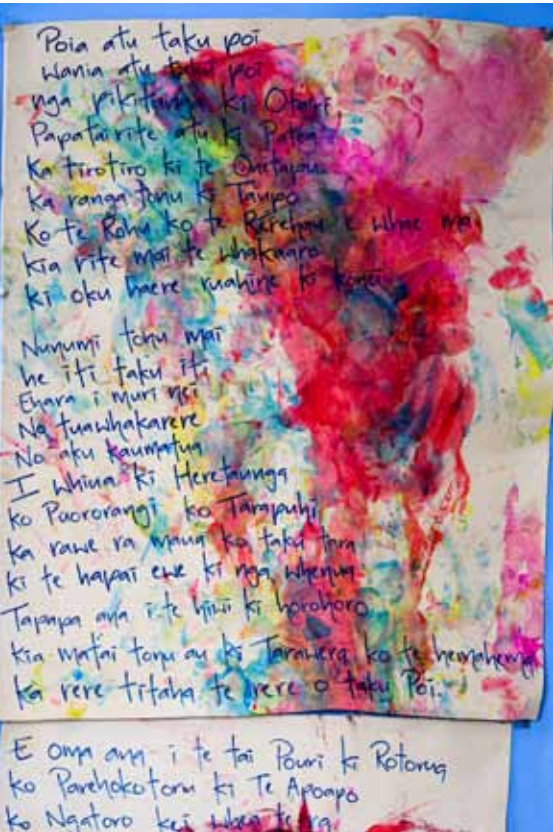 Poia atu taku poi
Wania atu taku poi
nga pikitanga ki Otairi
Papatairite atu ki Patea
Ka tirotiro ki te Onetapu
ka ranga tonu ki Taupo
Ko te Rohu ko te Rerehau e whae ma
kia rite mai te whakaaro
ki oku haere ruahine ki konei
Nunumi tonu mai
he iti taku iti
Ehara i muri nei
No tuawhakarere
No aku kaumatua
I whiua ki Heretaunga
ko Puororangi ko Tarapuhi
ka rawe ra maua ko taku tara
ki te hapai ewe ki nga whenua
Tapapa ana i te hiwi ki horohoro
kia matai tonu au ki Tarawera ko te hemahema
ka rere titaha te rere o taku Poi.
E oma ana i te tai Pouri ki Rotorua
ko Parehokotoru ki Te Apoapo
ko Ngatoro kei whea te ra